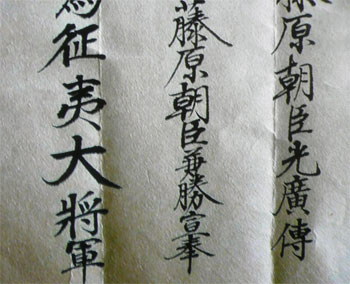 藤原朝臣光廣傳
藤原朝臣兼勝宣奉
為征夷大將軍